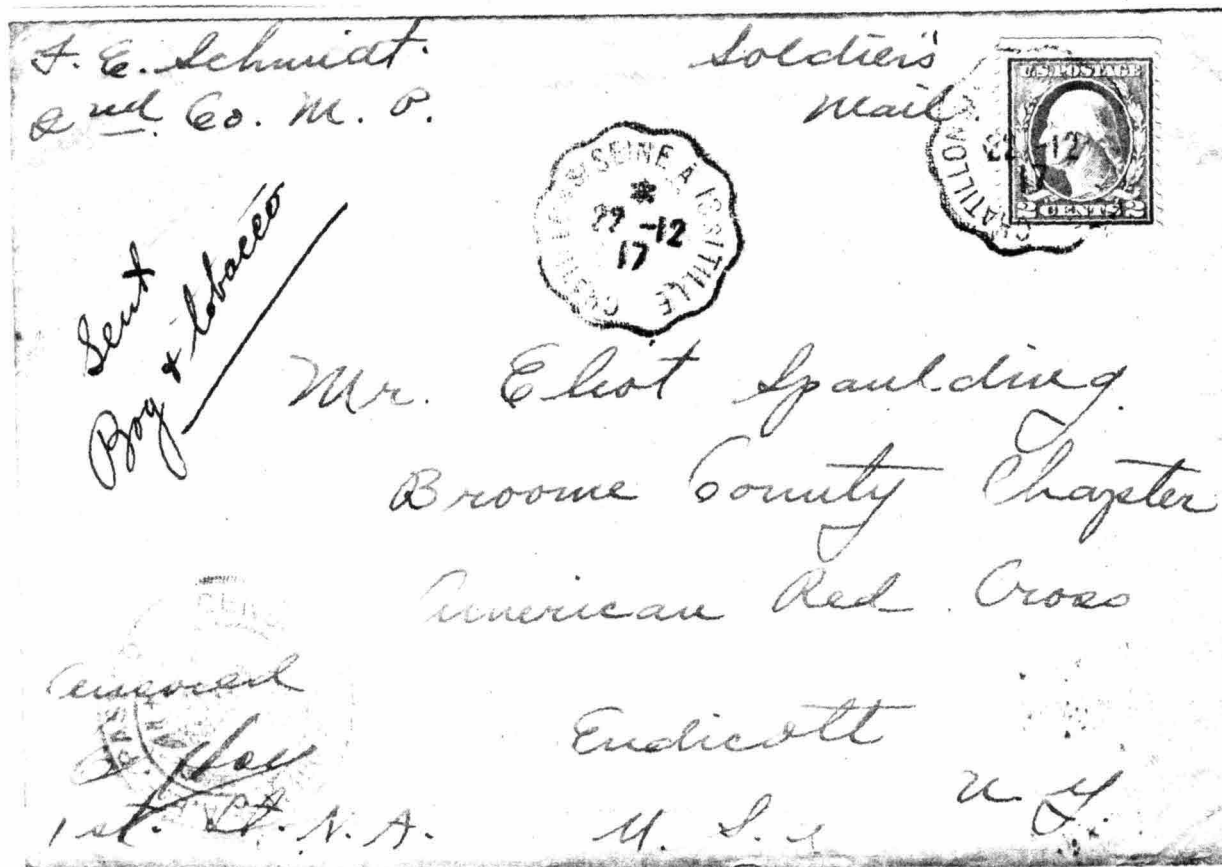 F. E. Schmidt.
2nd Co. M. P.
Soldier's
Mail.
U.S. POSTAGE
2 CENTS 2
CHATILLON
22 -12
17
SEINE A IS S TILLE
22 -12
17
Sent
Boy & tobacco
Mr. Eliot Spaulding.
Broome County Chapter
American Red Cross
Endicott
N. Y.
U. S. A
Censored
1st. Lt. N. A.